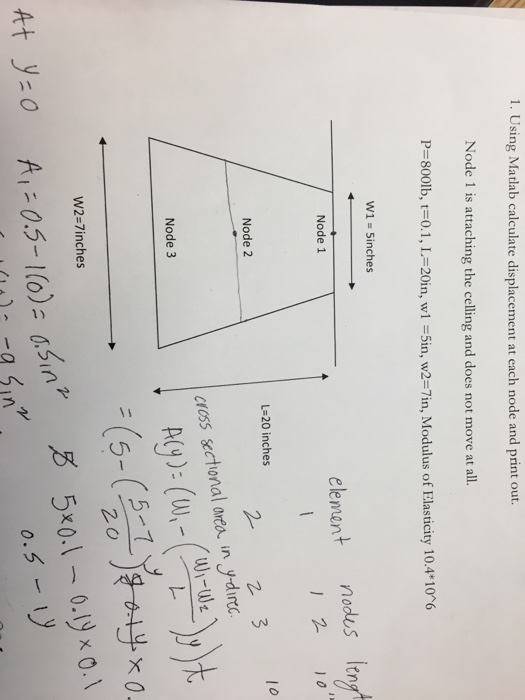 1. Using Matlab calculate displacement at each node and print out.
Node 1 is attaching the celling and does not move at all.
P=800lb, t=0.1, L=20in, w1 =5in, w2=7in, Modulus of Elasticity 10.4*10^6
W1 = 5inches
Node 1
Node 2
Node 3
W2=7inches
L=20 inches
element nodes lengt
1 1 2 10"
2 2 3 10
cross sectional area in y-direc.
A(y) = (W1 - (W1-W2/L)y)t
= (5-(5-7/20)y) x 0.
5x0.1 - 0.1y x 0.1
0.5 - 1y
At y=0 A1 = 0.5-1(0) = 0.5in²
= -9.5in²